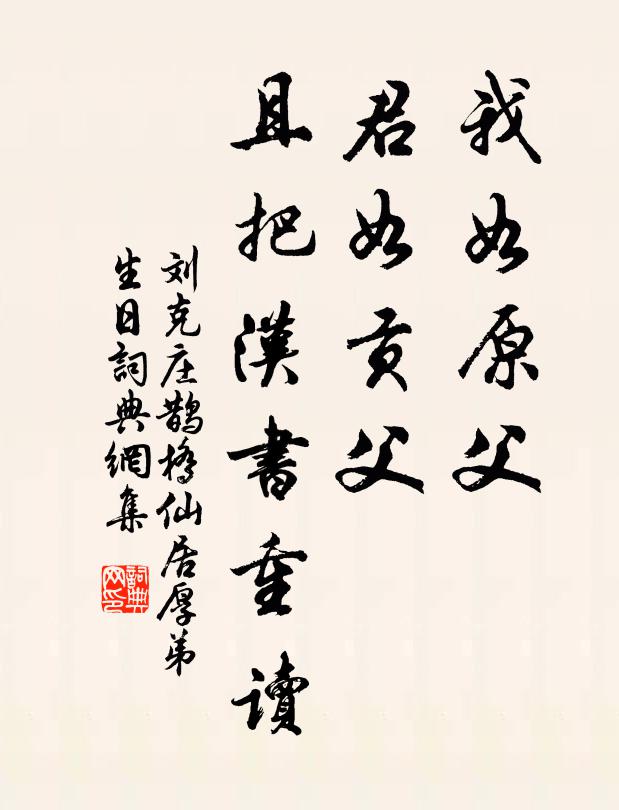 我如原父
君如贡父
且把漢書重讀
刘克庄鹊橋仙居厚弟
生日詞典網集
詞典网印